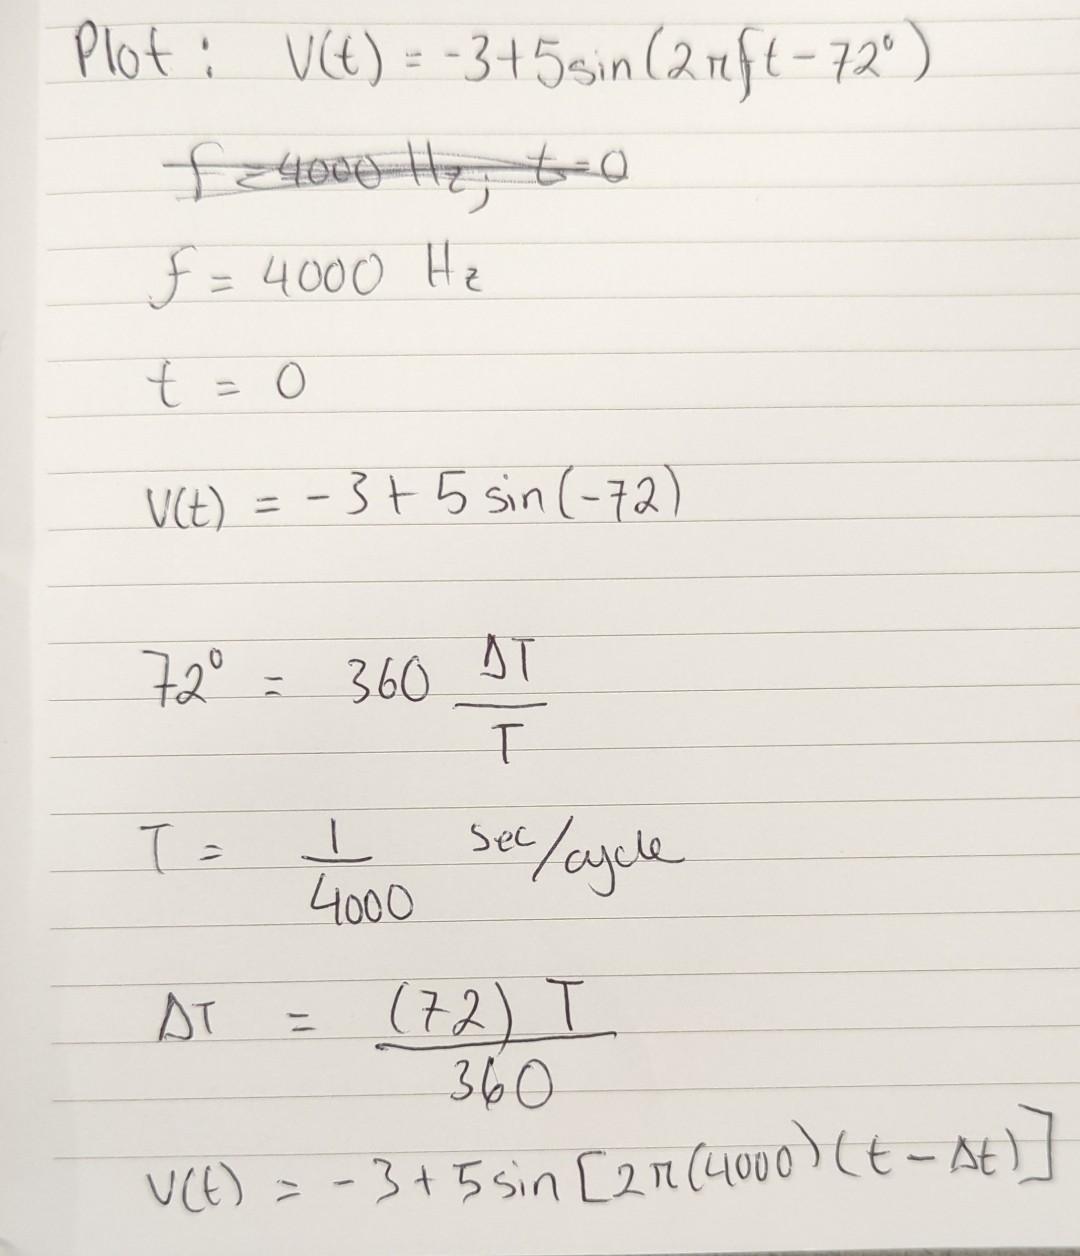 Plot : V(t) = -3+5sin(2πft-72°)
f=4000 Hz, t=0
f = 4000 Hz
t = 0
V(t) = -3+5 sin(-72)
72° = 360 ΔT/T
T = 1/4000 sec/cycle
ΔT = (72) T/360
V(t) = -3+5sin[2π(4000)(t-Δt)]